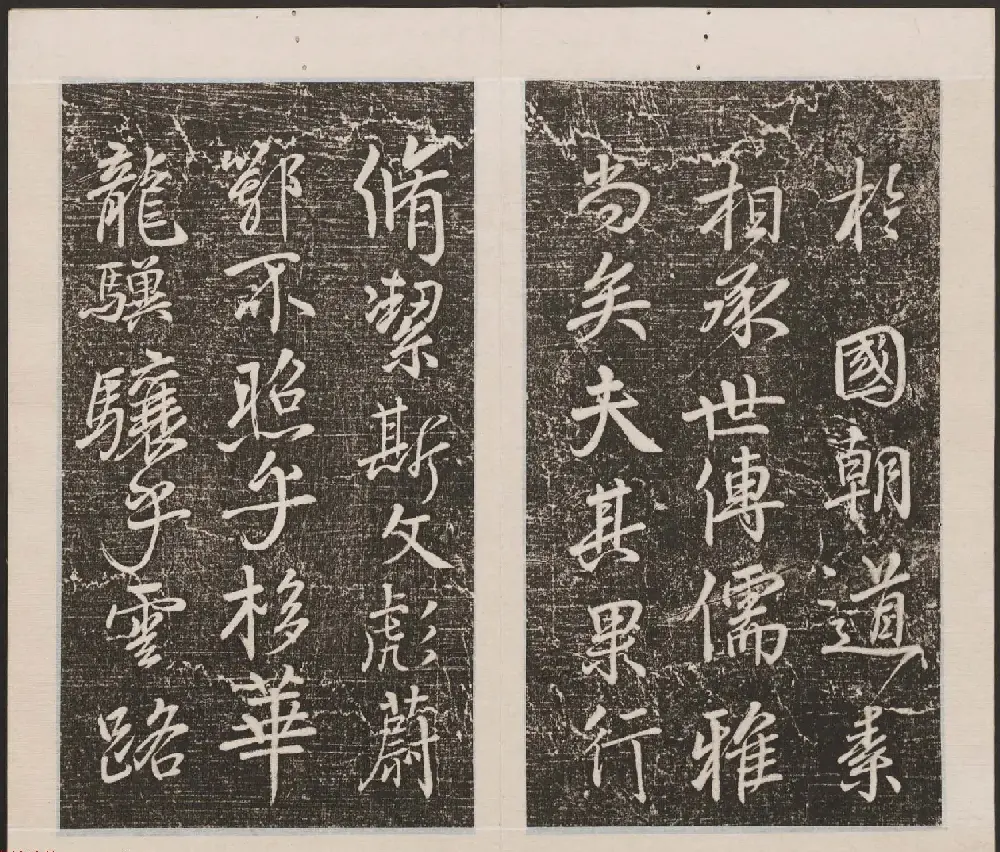 於國朝道素
相承世傳儒雅
尚矣夫其果行
脩潔斯文彪蔚
鄂不照乎栘華
龍驥驤乎雲路